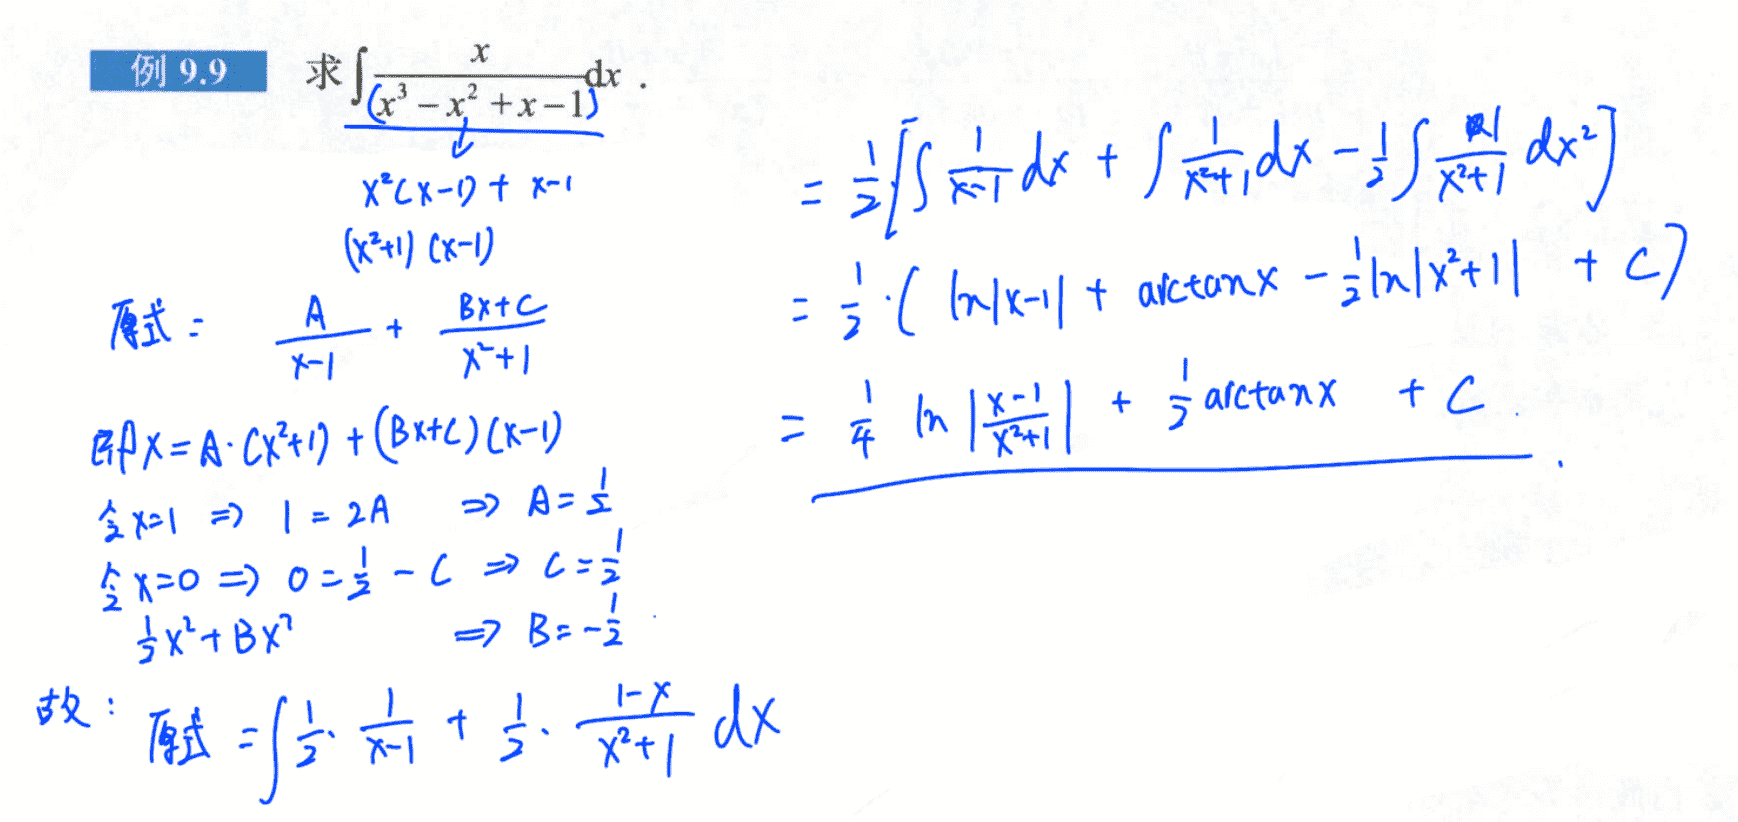 例 9.9 求∫ x/(x³ − x² + x − 1) dx .
x²(x-1) + x-1
(x²+1) (x-1)
原式 = A/(x-1) + (Bx+C)/(x²+1)
即 x = A·(x²+1) + (Bx+C)(x-1)
令x=1 => 1 = 2A => A = 1/2
令x=0 => 0 = 1/2 - C => C = 1/2
1/2x² + Bx² => B = -1/2
故: 原式 = ∫ 1/2 · 1/(x-1) + 1/2 · (1-x)/(x²+1) dx
= 1/2 [∫ 1/(x-1) dx + ∫ 1/(x²+1) dx - 1/2 ∫ 1/(x²+1) dx²]
= 1/2 · ( ln|x-1| + arctanx - 1/2 ln|x²+1| + C)
= 1/4 ln |(x-1)/(x²+1)| + 1/2 arctanx + C .